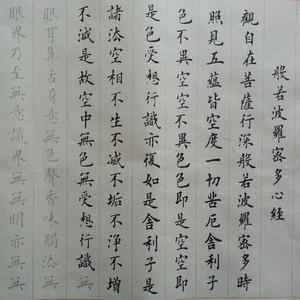 般若波羅蜜多心經
觀自在菩薩行深般若波羅蜜多時
照見五蘊皆空度一切苦厄舍利子
色不異空空不異色色即是空空即
是色受想行識亦復如是舍利子是
諸法空相不生不滅不垢不淨不增
不減是故空中無色無受想行識無
眼耳鼻舌身意無色聲香味觸法無
眼界乃至無意識界無無明亦無無